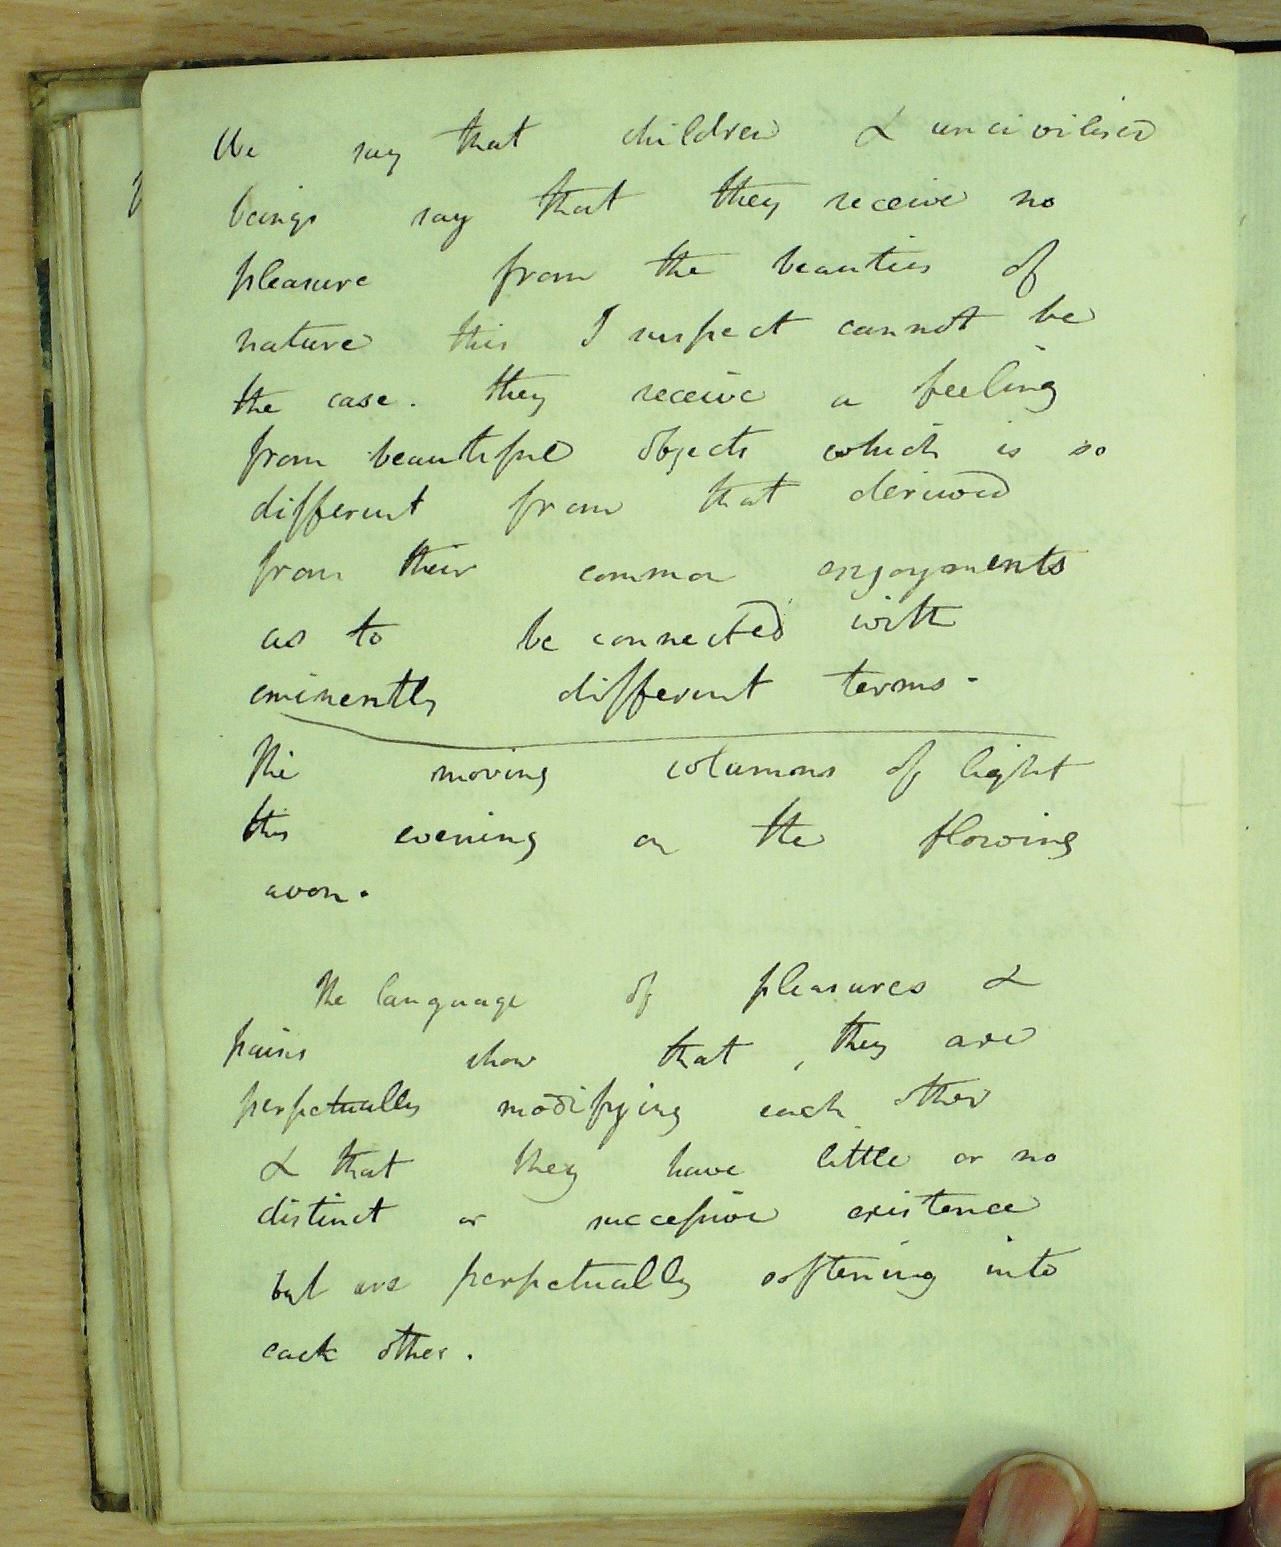 We say that children & uncivilised
beings say that they receive no
pleasure from the beauties of
nature this I suspect cannot be
the case. they receive a feeling
from beautiful objects which is so
different from that derived
from their common enjoyments
as to be connected with
eminently different terms.
The moving columns of light
this evening on the flowing
avon.
The language of pleasures &
pains show that, they are
perpetually modifying each other
& that they have little or no
distinct or successive existence
but are perpetually softening into
each other.